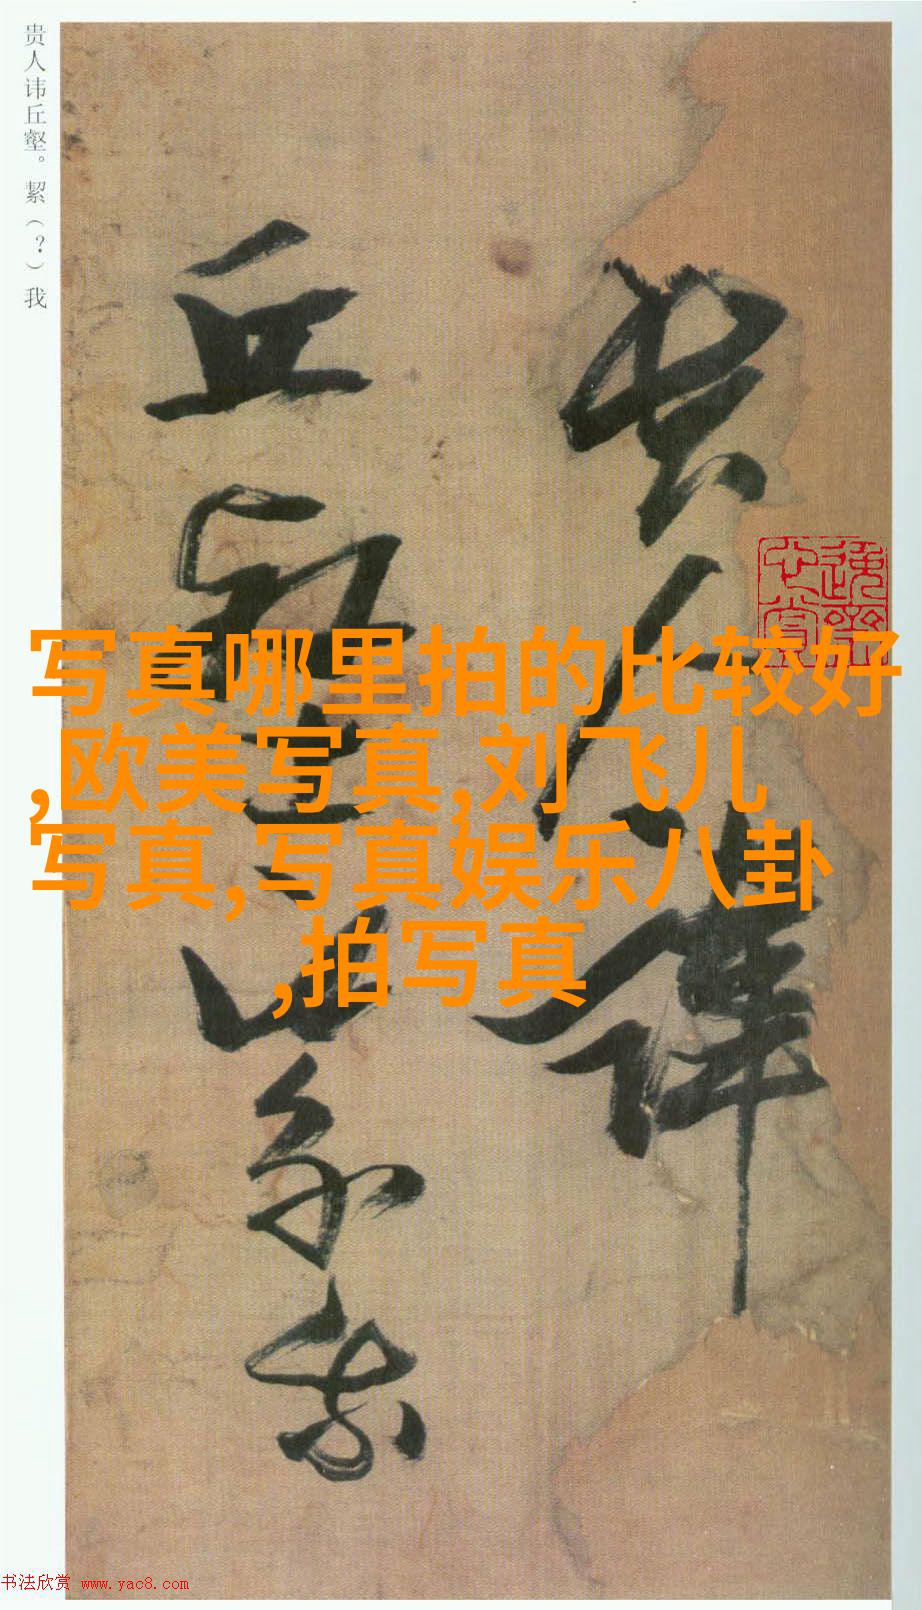 贵人讳丘壑。絜（？）我
贵人讳
丘壑
絜我
写真哪里拍的比较好
,欧美写真,刘飞儿
写真,写真娱乐八卦
,拍写真
书法欣赏 www.yac8.com